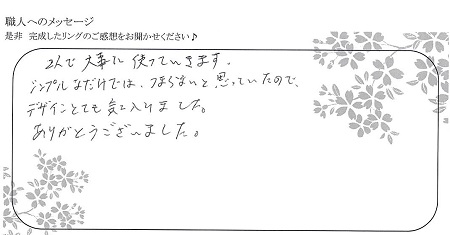 職人へのメッセージ
是非 完成したリングのご感想をお聞かせください♪
2人で大事に使っていきます。
シンプルなだけでは、つまらないと思っていたので、
デザインとても気に入りました。
ありがとうございました。